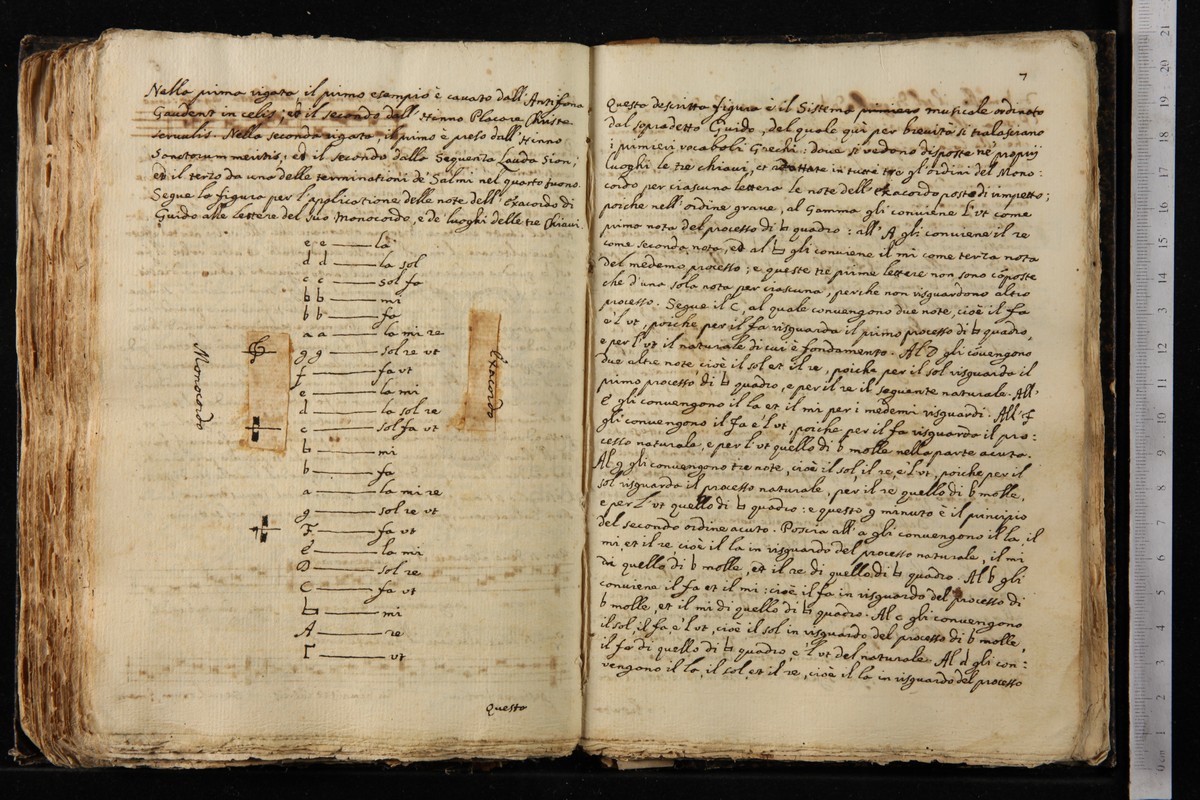 Nella prima rigata il primo esempio è cavato dall'Antifona
Gaudent in celis; et il secondo dall'Hinno Placare Christe
servulis. Nella seconda rigata, il primo è preso dall'Hinno
Sanctorum meritis; et il secondo dalla Sequenta Lauda Sion;
et il terzo da una delle terminationi de' Salmi nel quarto tuono.
Segue la figura per l'applicatione delle note dell'Exacordo di
Guido alle lettere del suo Monocordo, e de' luoghi delle tre Chiavi.
Monocordo
Exacordo
e e — la
d d — la sol
c c — sol fa
♮ ♮ — mi
b b — fa
a a — la mi re
g g — sol re vt
f — fa vt
e — la mi
d — la sol re
c — sol fa vt
♮ — mi
b — fa
a — la mi re
g — sol re vt
F — fa vt
E — la mi
D — sol re
C — fa vt
♮ — mi
A — re
Γ — vt
Questa
7
Questa descritta figura è il Sistema primiero musicale ordinato
dal sopradetto Guido, del quale qui per brevità si tralasciano
i primieri vocaboli Grechi: dove si vedono disposte ne' proprij
luoghi le tre chiavi, et adattate in tutti tre gl'ordini del Mono:
cordo per ciascuna lettera le note dell'Exacordo posto di impetto;
poiche nell'ordine grave, al Gamma gli conviene l'vt come
prima nota del processo di ♮ quadro: all'A gli conviene il re
come seconda nota, et al ♮ gli conviene il mi come terza nota
del medemo processo; e queste tre prime lettere non sono cõposte
che d'una sola nota per ciascuna, perche non risguardono altro
processo. Segue il C, al quale convengono due note, cioè il fa
e l'vt, poiche per il fa risguarda il primo processo di ♮ quadro,
e per l'vt il naturale di cui è fondamento. Al D gli cõvengono
due altre note cioè il sol et il re, poiche per il sol risguarda il
primo processo di ♮ quadro, e per il re il seguente naturale. All'
E gli convengono il la et il mi per i medemi risguardi. All'F
gli convengono il Fa e l'vt, poiche per il fa risguarda il pro:
cesso naturale, e per l'vt quello di b molle nella parte acuta.
Al g gli convengono tre note, cioè il sol, il re, e l'vt, poiche per il
sol risguarda il processo naturale, per il re quello di b molle,
e per l'vt quello di ♮ quadro: e questo g minuto è il principio
del secondo ordine acuto. Poscia all'a gli convengono il la, il
mi, et il re cioè il la in risguardo del processo naturale, il mi
di quello di b molle, et il re di quello di ♮ quadro. Al b gli
conviene il fa et il mi: cioè il fa in risguardo del processo di
b molle, et il mi di quello di ♮ quadro. Al c gli convengono
il sol, il fa e l'vt, cioè il sol in risguardo del processo di b molle,
il fa di quello di ♮ quadro, e l'vt del naturale. Al d gli con:
vengono il la, il sol et il re, cioè il la in risguardo del processo